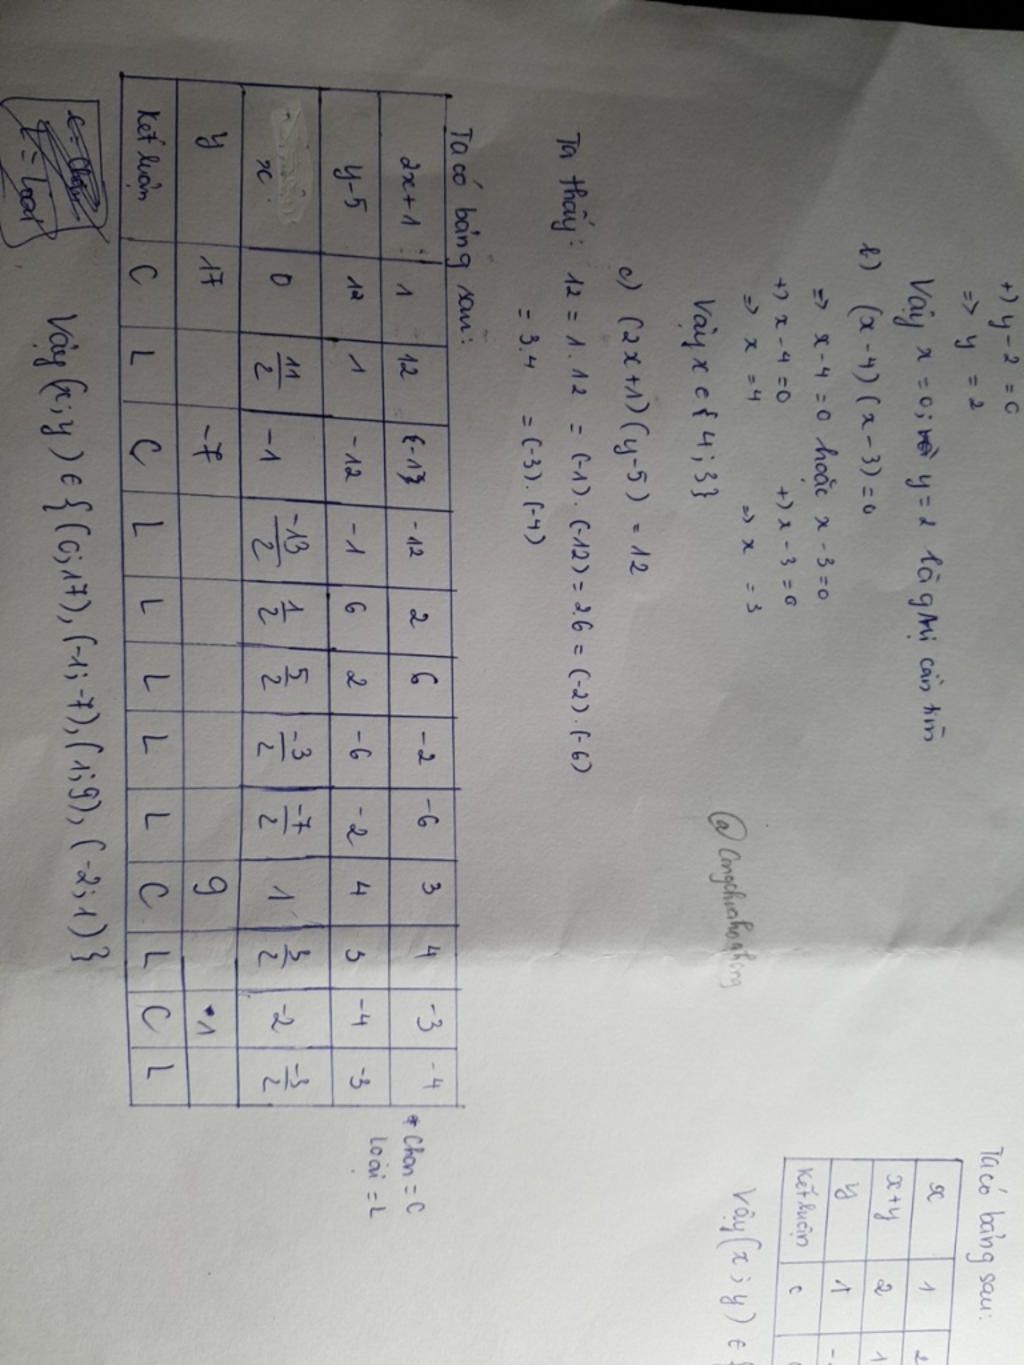 +) y-2=0
=> y = 2
Vậy x = 0; y = 2 là giá trị cần tìm
b) (x-4)(x-3)=0
=> x-4=0 hoặc x-3=0
+) x-4=0 +) x-3=0
=> x = 4 => x = 3
Vậy x ∈ {4; 3}
c) (2x+1)(y-5) = 12
Ta thấy: 12 = 1.12 = (-1).(-12) = 2.6 = (-2).(-6)
= 3.4 = (-3).(-4)
Ta có bảng sau:
2x+1 1 12 -1 -12 2 6 -2 -6 3 4 -3 -4
y-5 12 1 -12 -1 6 2 -6 -2 4 3 -4 -3
x 0 11/2 -1 -13/2 1/2 5/2 -3/2 -7/2 1 3/2 -2 -5/2
y 17 -7 9 1
Kết luận C L C L L L L L C L C L
* Chọn = C
Loại = L
Vậy (x; y) ∈ {(0; 17), (-1; -7), (1; 9), (-2; 1)}
Ta có bảng sau:
x 1 2
x+y 2 1
y 1 -
Kết luận C
Vậy (x; y) ∈ {